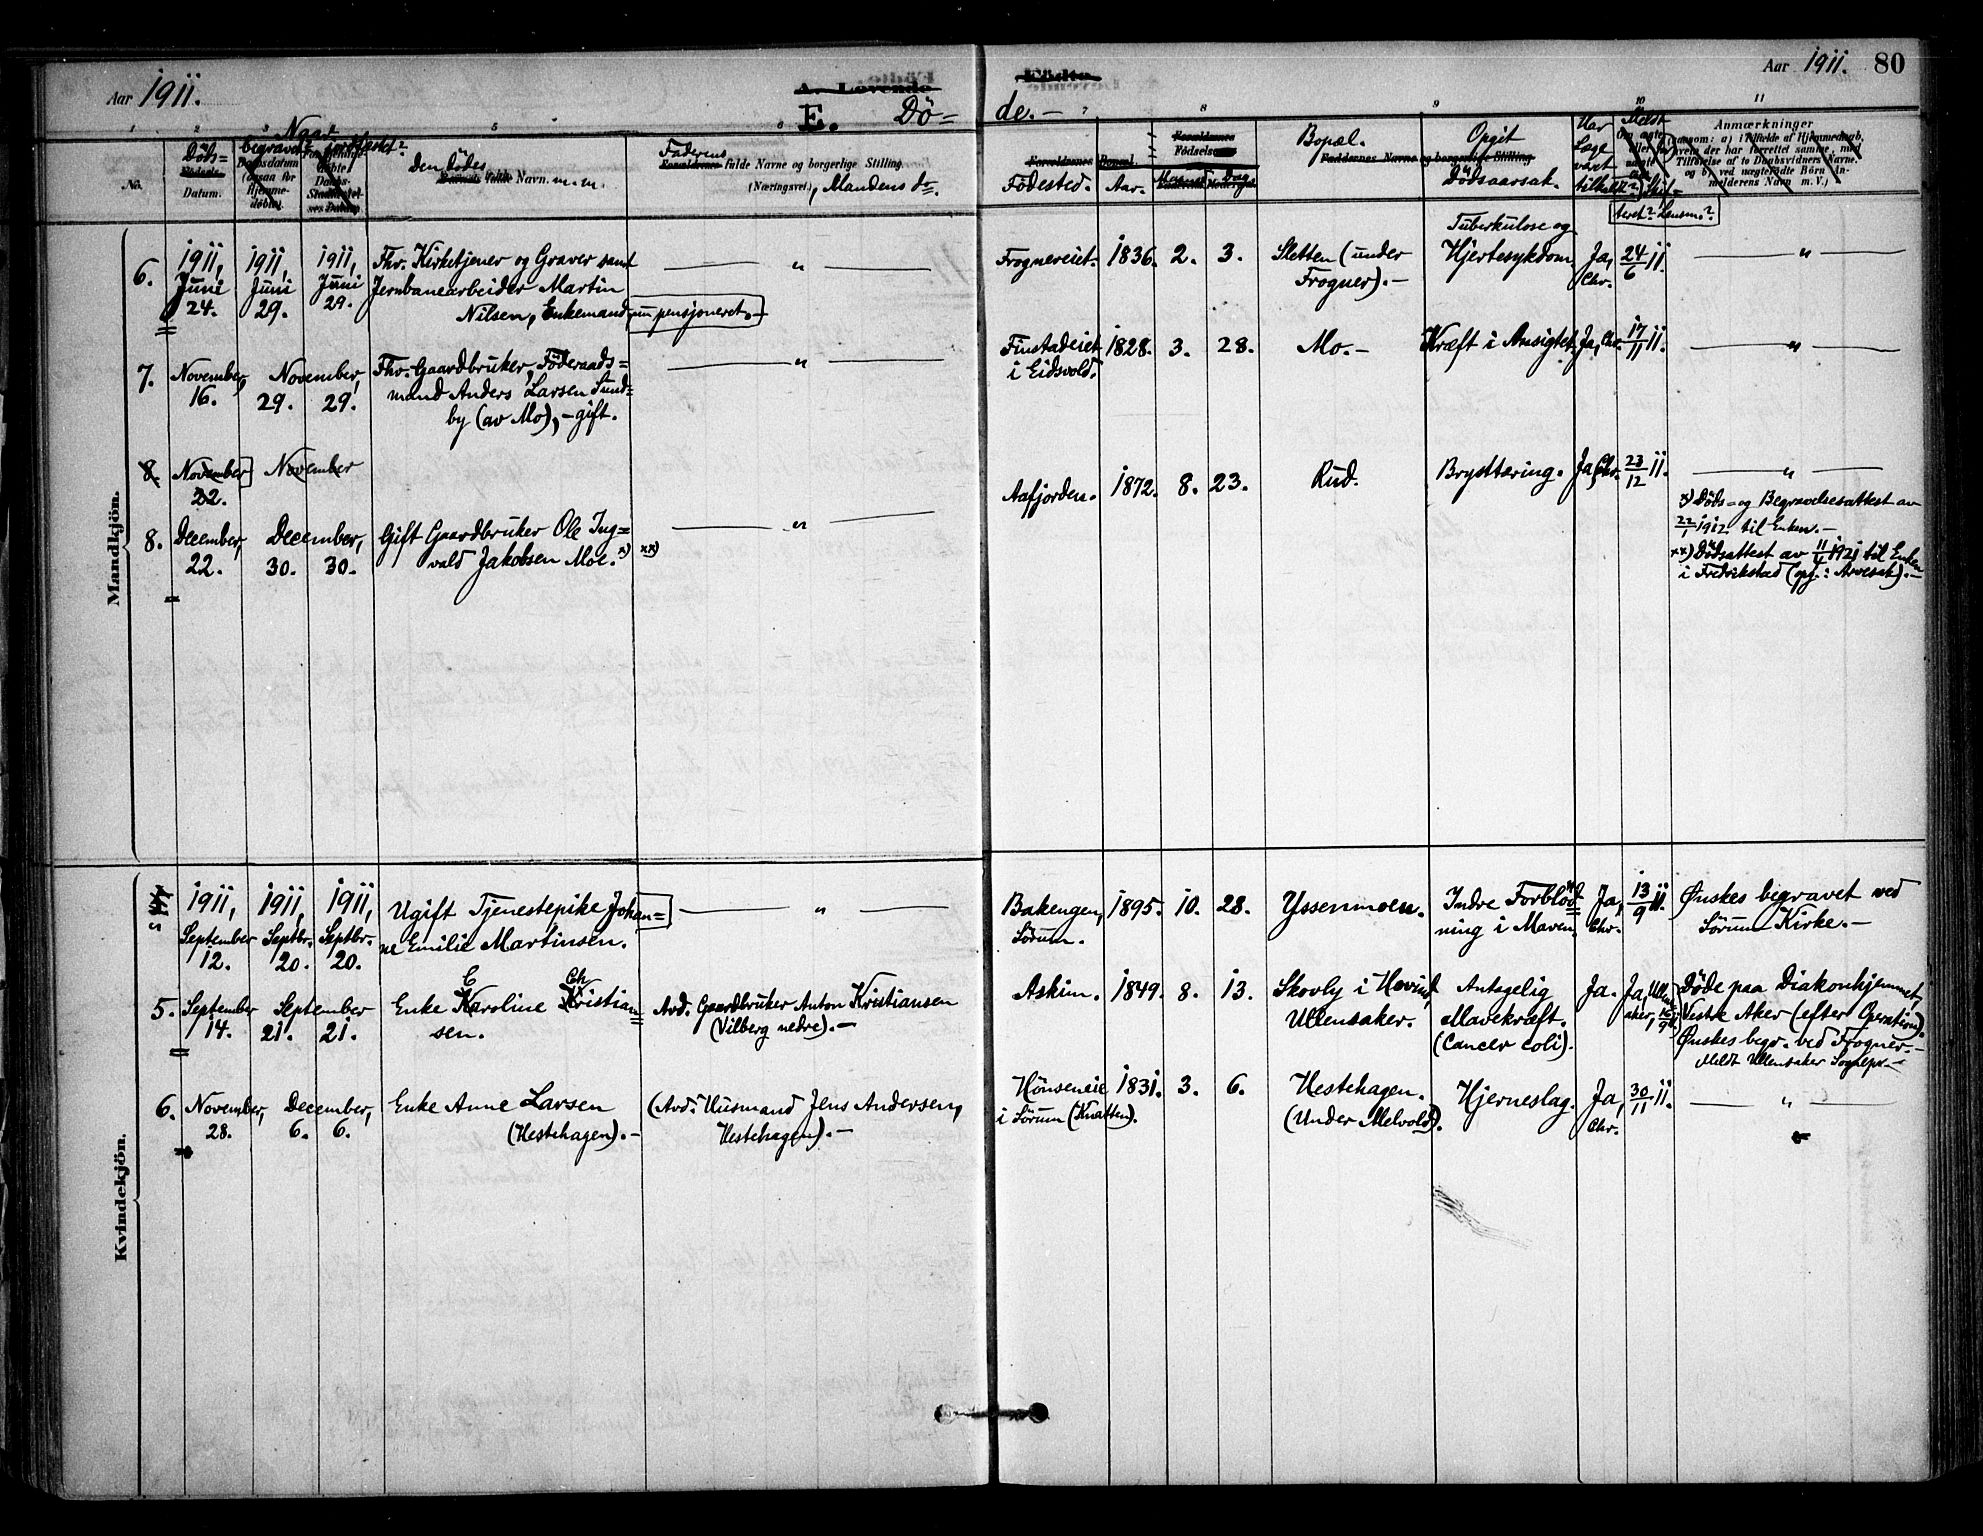 Aar 1911.
E. Dö=
de.-
Aar 1911. 80
Døds=
Datum.
Naar
begravet? jordfestet?
Den Dödes
Navn. m. m.
Faderens
fulde Navne og borgerlige Stilling.
(Næringsvei.), Mandens do
Födested.
Aar.
Bopæl.
Opgit
Dødsaarsak.
Har
Læge
været
tilkaldt?
Anmærkninger
Mandkjön.
6. 1911, Juni 24.
1911, Juni 29.
1911, Juni 29.
Fhv. Kirketjener og Graver samt
Jernbanearbeider Martin
Nilsen, Enkemand, nu pensjoneret.-
— " —
Frognereiet. 1836. 2. 3.
Sletten (under
Frogner).-
Tuberkulose og
Hjertesykdom.
Ja, Chr.
24/6 11.
— " —
7. November, 16.
November, 29.
November, 29.
Fhv. Gaardbruker, Föderaads=
mand Anders Larsen Sund=
by (av Mo), - gift.
— " —
Finstadeiet
i Eidsvold.
1828. 3. 28.
Mo.-
Kræft i Ansigtet.
Ja, Chr.
17/11 11.
— " —
8. November 22.
November
8. December, 22.
December, 30.
30.
Gift Gaardbruker Ole Ing=
vald Jakobsen Moe. x) xx)
— " —
Aafjorden. 1872. 8. 23.
Rud.
Brysttæring.
Ja, Chr.
23/12 11.
— " —
x) Døds- og Begravelsesattest av
22/1 1912 til Enken.-
xx) Dødsattest av 11/4 1921 til Enken
i Fredrikstad (opg.: Arvesak).-
Kvindekjön.
1911, September 12.
1911, Septbr. 20.
1911, Septbr. 20.
Ugift Tjenestepike Johan=
ne Emilie Martinsen.
— " —
Bakengen,
Sörum.
1895. 10. 28.
Yssenmoen.
Indre Forblöd=
ning i Maven.
Ja, Chr.
13/9 11.
Ønskes begravet ved
Sørum Kirke.-
5. September 14.
September 21.
21.
Enke Karoline Kristian=
sen.
Avd. Gaardbruker Anton Kristiansen
(Vilberg nedre).-
Askim. 1849. 8. 13.
Skovly i Hovind,
Ullensaker.
Antagelig
Mavekræft.
(Cancer coli).
Ja.
Ja, Ullens=
aker,
Döde paa Diakonhjemmet,
Vestre Aker (efter Operation).
Ønskes begr. ved Frogner.-
Meldt Ullensaker Sognepr.-
6. November, 28.
December, 6.
6.
Enke Anne Larsen
(Hestehagen).-
(Avd. Husmand Jens Andersen,
Hestehagen).-
Hönseneie
i Sörum (Knatten).
1831. 3. 6.
Hestehagen.
(Under Melvold).
Hjerneslag.
Ja, Chr.
30/11 11.
— " —